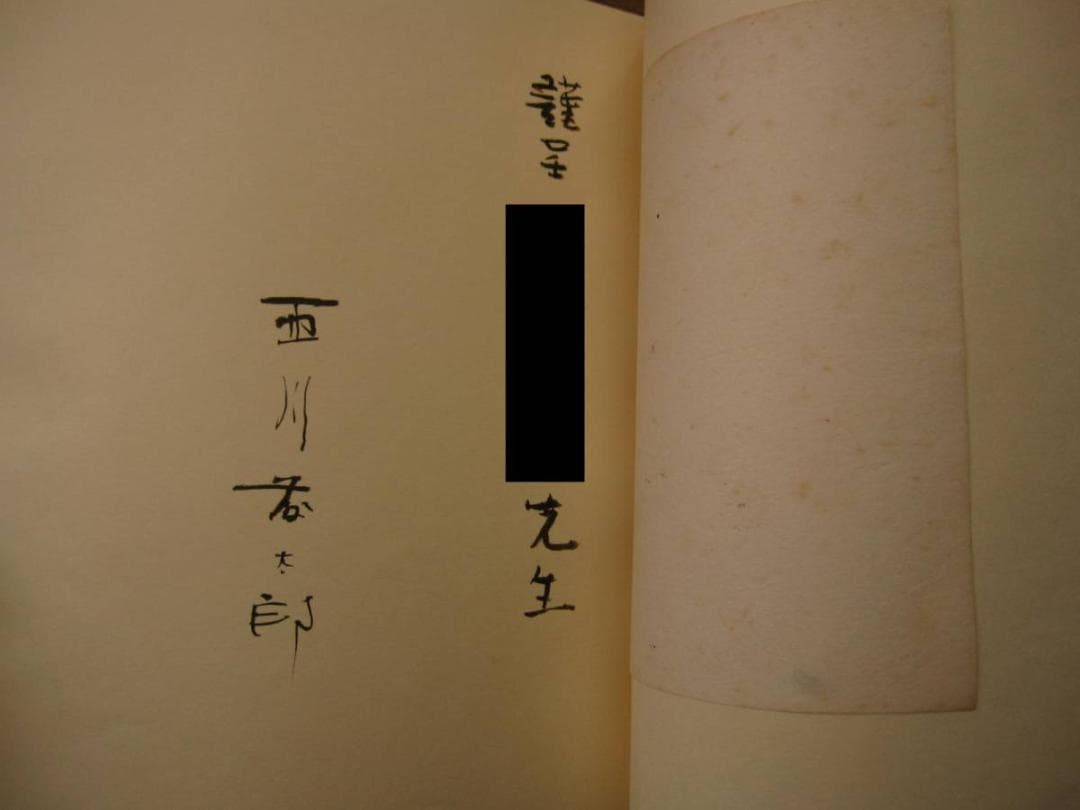 謹呈
先生
西川太郎